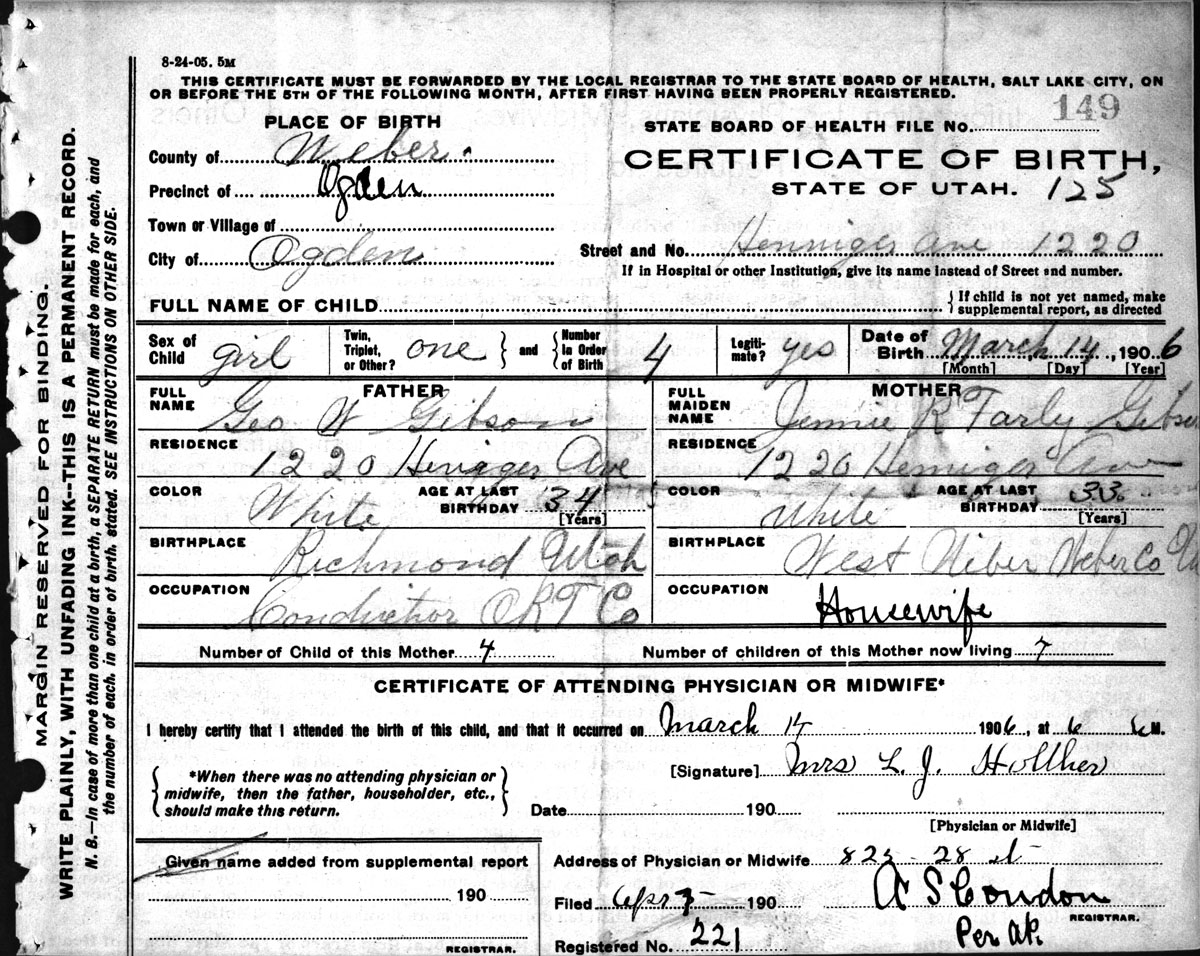 8-24-05. 5M
THIS CERTIFICATE MUST BE FORWARDED BY THE LOCAL REGISTRAR TO THE STATE BOARD OF HEALTH, SALT LAKE CITY, ON
OR BEFORE THE 5TH OF THE FOLLOWING MONTH, AFTER FIRST HAVING BEEN PROPERLY REGISTERED.
PLACE OF BIRTH
County of Weber
Precinct of Ogden
Town or Village of
City of Ogden
STATE BOARD OF HEALTH FILE No. 149
CERTIFICATE OF BIRTH,
STATE OF UTAH. 125
Street and No. Henniger Ave 1220
If in Hospital or other Institution, give its name instead of Street and number.
FULL NAME OF CHILD
{ If child is not yet named, make
supplemental report, as directed
Sex of Child girl
Twin, Triplet, or Other? one } and { Number In Order of Birth 4
Legitimate? yes
Date of Birth March 14, 1906
[Month] [Day] [Year]
FATHER
FULL NAME Geo W Gibson
RESIDENCE 1220 Heniger Ave
COLOR White
AGE AT LAST BIRTHDAY 34
[Years]
BIRTHPLACE Richmond Utah
OCCUPATION Conductor O R T Co
MOTHER
FULL MAIDEN NAME Jennie R Farly Gibson
RESIDENCE 1220 Hemiger Ave
COLOR White
AGE AT LAST BIRTHDAY 33
[Years]
BIRTHPLACE West Wiber Weber Co
OCCUPATION Housewife
Number of Child of this Mother 4
Number of children of this Mother now living 7
CERTIFICATE OF ATTENDING PHYSICIAN OR MIDWIFE*
I hereby certify that I attended the birth of this child, and that it occurred on March 14 1906, at 6 M.
{ *When there was no attending physician or
midwife, then the father, householder, etc.,
should make this return. }
[Signature] Mrs L. J. Hollher
Date 190
[Physician or Midwife]
Given name added from supplemental report
190
REGISTRAR.
Address of Physician or Midwife 825 - 28 st
Filed Apr 190
A S Condon
REGISTRAR.
Per AP.
Registered No. 221
MARGIN RESERVED FOR BINDING.
WRITE PLAINLY, WITH UNFADING INK--THIS IS A PERMANENT RECORD.
N. B.—In case of more than one child at a birth, a SEPARATE RETURN must be made for each, and
the number of each, in order of birth, stated. SEE INSTRUCTIONS ON OTHER SIDE.